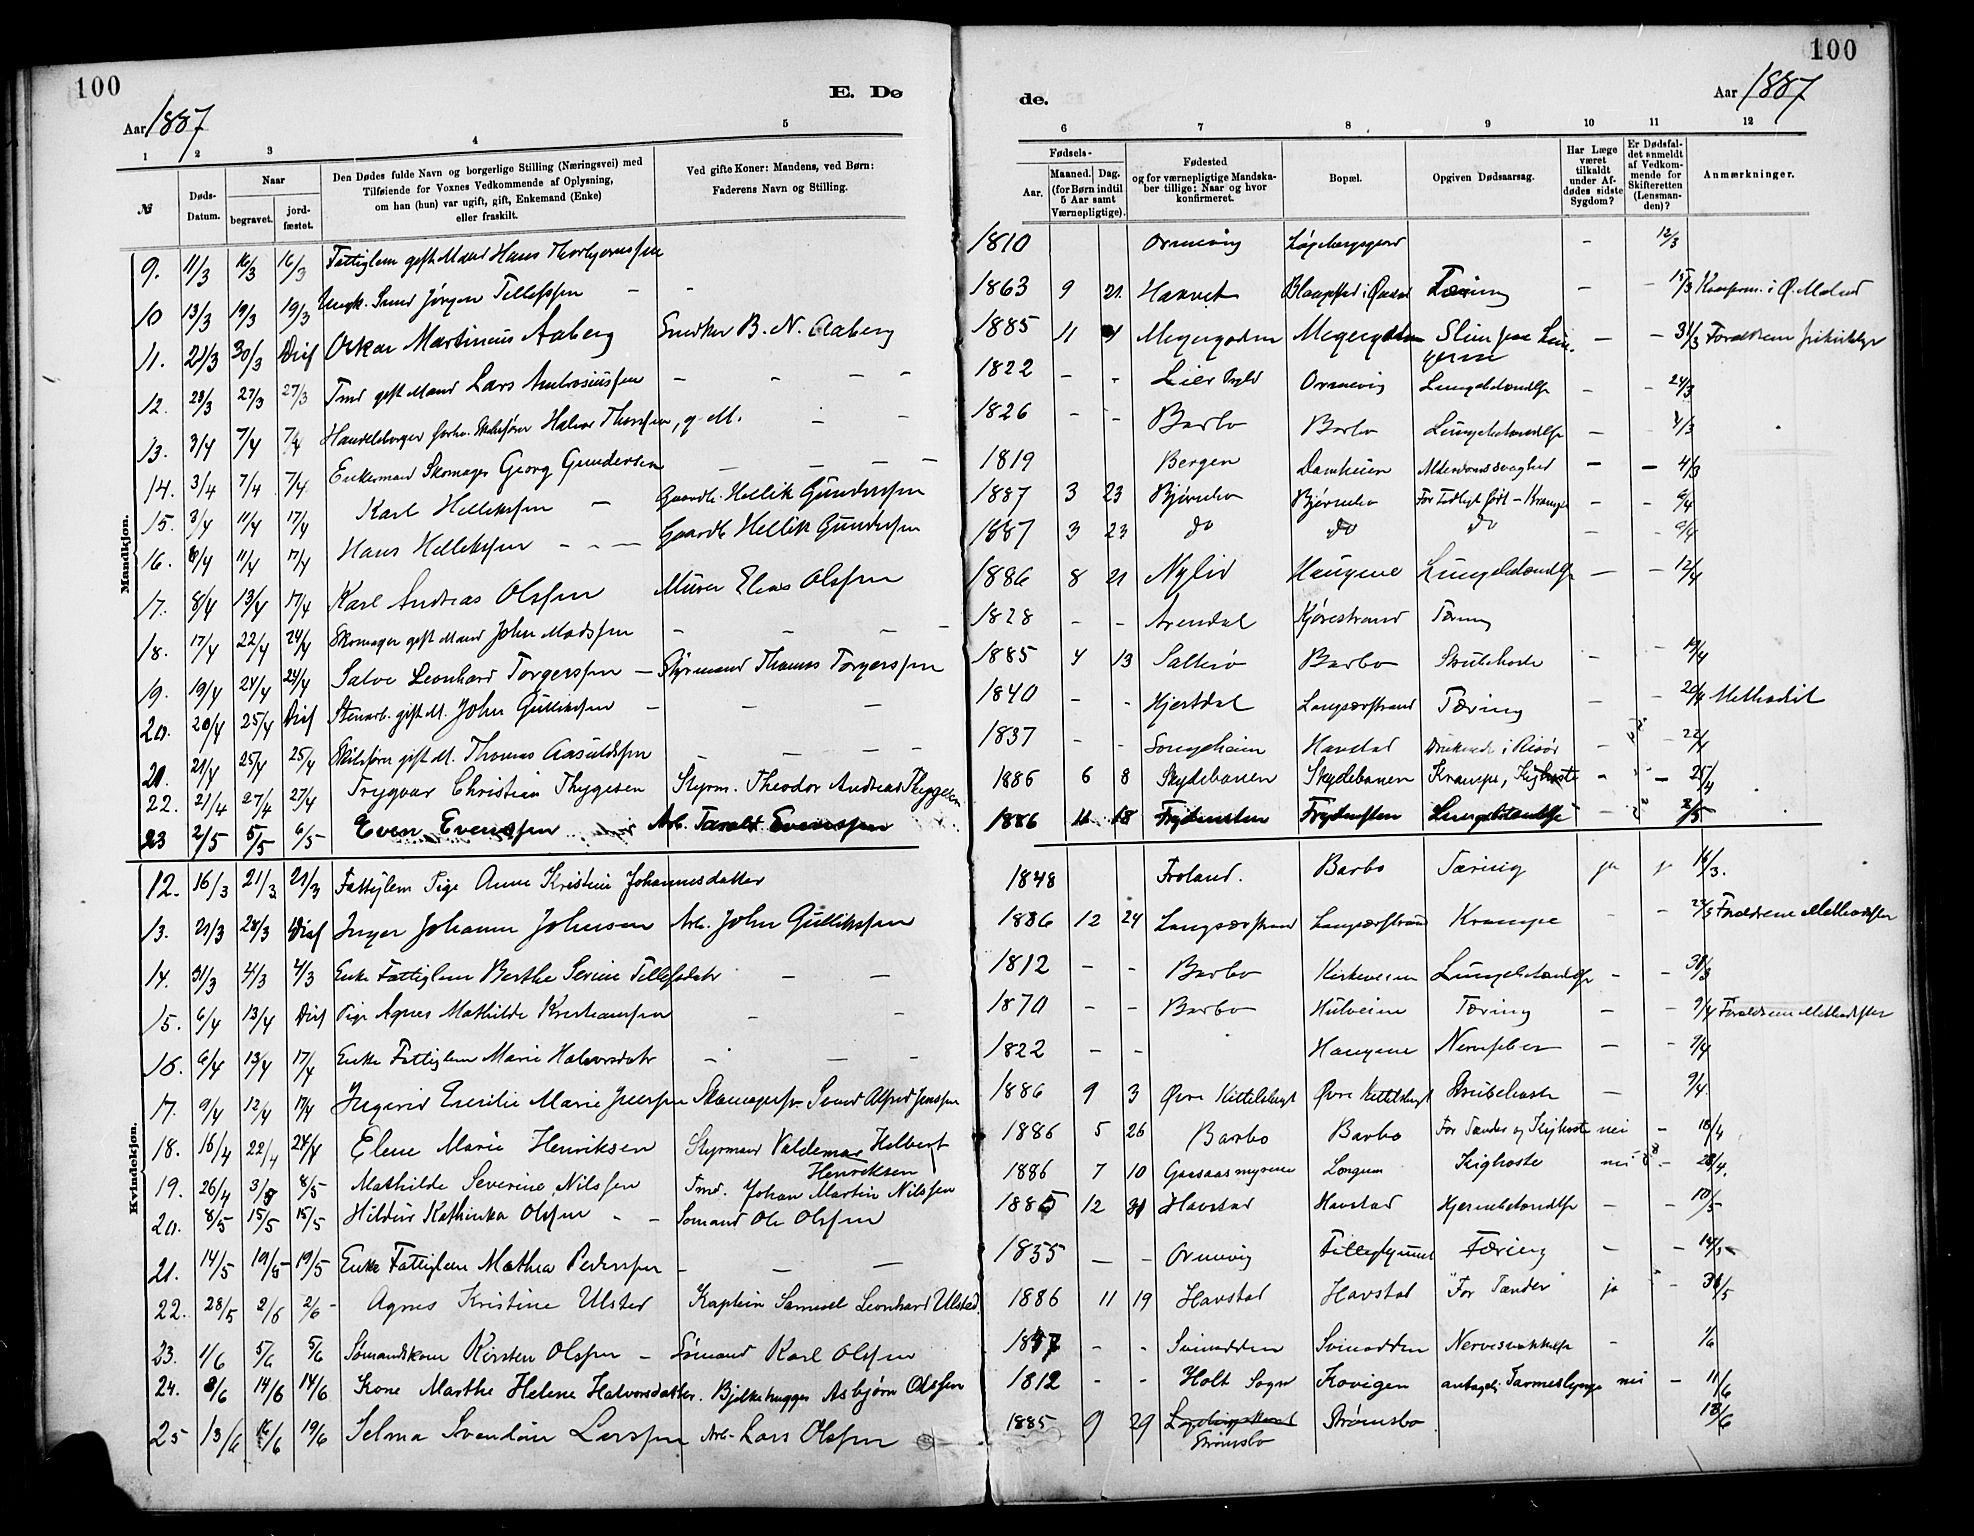 100
Aar 1887
E. Dø
1 2 3 4 5
№
Døds-Datum.
Naar
begravet.
jord-fæstet.
Den Dødes fulde Navn og borgerlige Stilling (Næringsvei) med
Tilføiende for Voxnes Vedkommende af Oplysning,
om han (hun) var ugift, gift, Enkemand (Enke)
eller fraskilt.
Ved gifte Koner: Mandens, ved Børn:
Faderens Navn og Stilling.
Mandkjøn.
9. 11/3 16/3 16/3 Fattiglem gift Mand Hans Thorbjørnssen -
10 13/3 19/3 19/3 Ungk. Sømd Jørgen Tellefssen - -
11. 21/3 30/3 Diss Oskar Martinius Aaberg Snedker B. N. Aaberg
12. 23/3 27/3 27/3 Tmd gift Mand Lars Ambrosiussen - - - -
13. 3/4 7/4 7/4 Handelsborger forhv. Skibsfører Halvor Thorssen, g M. - -
14. 3/4 7/4 7/4 Enkemand Skomager Georg Gundersen - - - -
15. 3/4 11/4 17/4 Karl Hellikssen - Gaardb. Hellik Gunderssen
16. 6/4 11/4 17/4 Hans Hellikssen - - - Gaardb Hellik Gunderssen
17. 8/4 13/4 17/4 Karl Andreas Olssen Murer Elias Olssen
18. 17/4 22/4 24/4 Skomager gift Mand John Madssen - - - -
19. 19/4 24/4 24/4 Salve Leonhard Torgerssen - Styrmand Thomas Torgerssen
20. 20/4 25/4 Diss Stenarb. gift M. John Gullikssen - - -
21. 21/4 25/4 25/4 Skibsfører gift M. Thomas Aasuldssen - - - -
22. 21/4 27/4 27/4 Trygvar Christian Thygesen Styrm. Theodor Andreas Thygesen
23 2/5 5/5 6/5 Even Evenssen Arb. Tarald Evenssen
Kvindekjøn.
12. 16/3 21/3 21/3 Fattiglem Pige Anne Kristine Johannesdatter
13. 21/3 28/3 Diss Inger Johanne Johnsen Arb. John Gullikssen
14. 31/3 4/3 4/3 Enke Fattiglem Berthe Serine Tellefsdatr - -
15. 6/4 13/4 Diss Pige Agnes Mathilde Kristianssen - -
16. 6/4 13/4 17/4 Enke Fattiglem Marie Halvorsdatr - - -
17. 9/4 12/4 17/4 Ingrid Emilie Marie Jenssen Skomagersv Svend Alfred Jenssen
18. 16/4 22/4 24/4 Elene Marie Henriksen Styrmand Valdemar Holbert Henriksen
19. 26/4 3/5 8/5 Mathilde Severine Nilssen Tmd. Johan Martin Nilssen
20. 8/5 15/5 15/5 Hildur Kathinka Olssen - - Sømand Ole Olssen
21. 14/5 19/5 19/5 Enke Fattiglem Mathea Pederssen - - -
22. 28/5 2/6 2/6 - Agnes Kristine Ulstad Kaptein Samuel Leonhard Ulstad.
23. 1/6 5/6 5/6 Sømandskone Kirsten Olssen - Sømand Karl Olssen
24. 8/6 14/6 14/6 Kone Marthe Helene Halvorsdatter. Bjelkehugger Asbjørn Olssen
25 13/6 16/6 19/6 Selma Svendine Larssen Arb. Lars Olssen
100
Aar 1887
de.
6 7 8 9 10 11 12
Fødsels-
Aar.
Maaned. Dag.
(for Børn indtil
5 Aar samt
Værnepligtige).
Fødested
og for værnepligtige Mandska-
ber tillige: Naar og hvor
konfirmeret.
Bopæl.
Opgiven Dødsaarsag.
Har Læge
været
tilkaldt
under Af-
dødes sidste
Sygdom?
Er Dødsfal-
det anmeldt
af Vedkom-
mende for
Skifteretten
(Lensman-
den)?
Anmærkninger.
1810 Ormevig Løgebergsgaard - 12/3
1863 9 21. Haavet Tæring - - 15/3 Konfirm. i Ø. Moland
1885 11 Meyergaden Meyergaden - - 31/3 Forældrene frikirkelige
1822 - - Lier Ormevig Lungebetændelse - - 24/3
1826 - - Barbo Barbo Lungebetændelse - - 4/3
1819 Bergen Damheien Alderdomssvaghed - - 4/3
1887 3 23 Bjørnebo Bjørnebo For Tidligt født - Krampe - - 6/4
1887 3 23 do do do - 6/4
1886 8 21 Nylid Haugene Lungebetændelse - - 12/4
1828 - - Arendal Kjørestrand Tæring
1885 4 13 Saltrø Barbo Strubehoste - - 19/4
1840 - - Hjertdal Langsærstrand Tæring - - 20/4 Methodist
1837 - - Songeheien Havstad Druknede i Risør - - 22/4
1886 6 8 Skydebanen Skydebanen Krampe, Kighoste - - 25/4
1886 11 18 Frydensten Frydensten Lungebetændelse - 2/5
1848 Froland. Barbo Tæring ja 16/3.
1886 12 24 Langsærstrand Langsærstrand Krampe - - Forældrene Methodister
1812 - - Barbo Kirkeveien Lungebetændelse - - 31/3
1870 - - Barbo Hulveien Tæring - - 9/4 Forældrene Methodister
1822 - - Haugene Nervefeber - - 7/4
1886 9 3 Øvre Kittelsbugt Øvre Kittelsbugt Strubehoste - 9/4
1886 5 26 Barbo Barbo For Tænder og Kighoste nei - 18/4
1886 7 10 Gaasaasmyrene Longum Kighoste nei - 28/4.
1885 12 31 Havstad Havstad Hjernebetændelse - - 10/5
1835 - - Ormevig Tæring - - 14/5
1886 11 19 Havstad Havstad "For Tænder" ja - 31/5
1857 - - Svinodden Svinodden Nervesvækkelse - 1/6
1812 - - Holt Sogn Kovigen antagelig Tarmeslynge nei - 11/6
1885 9 29 Strømsbo Strømsbo 18/6